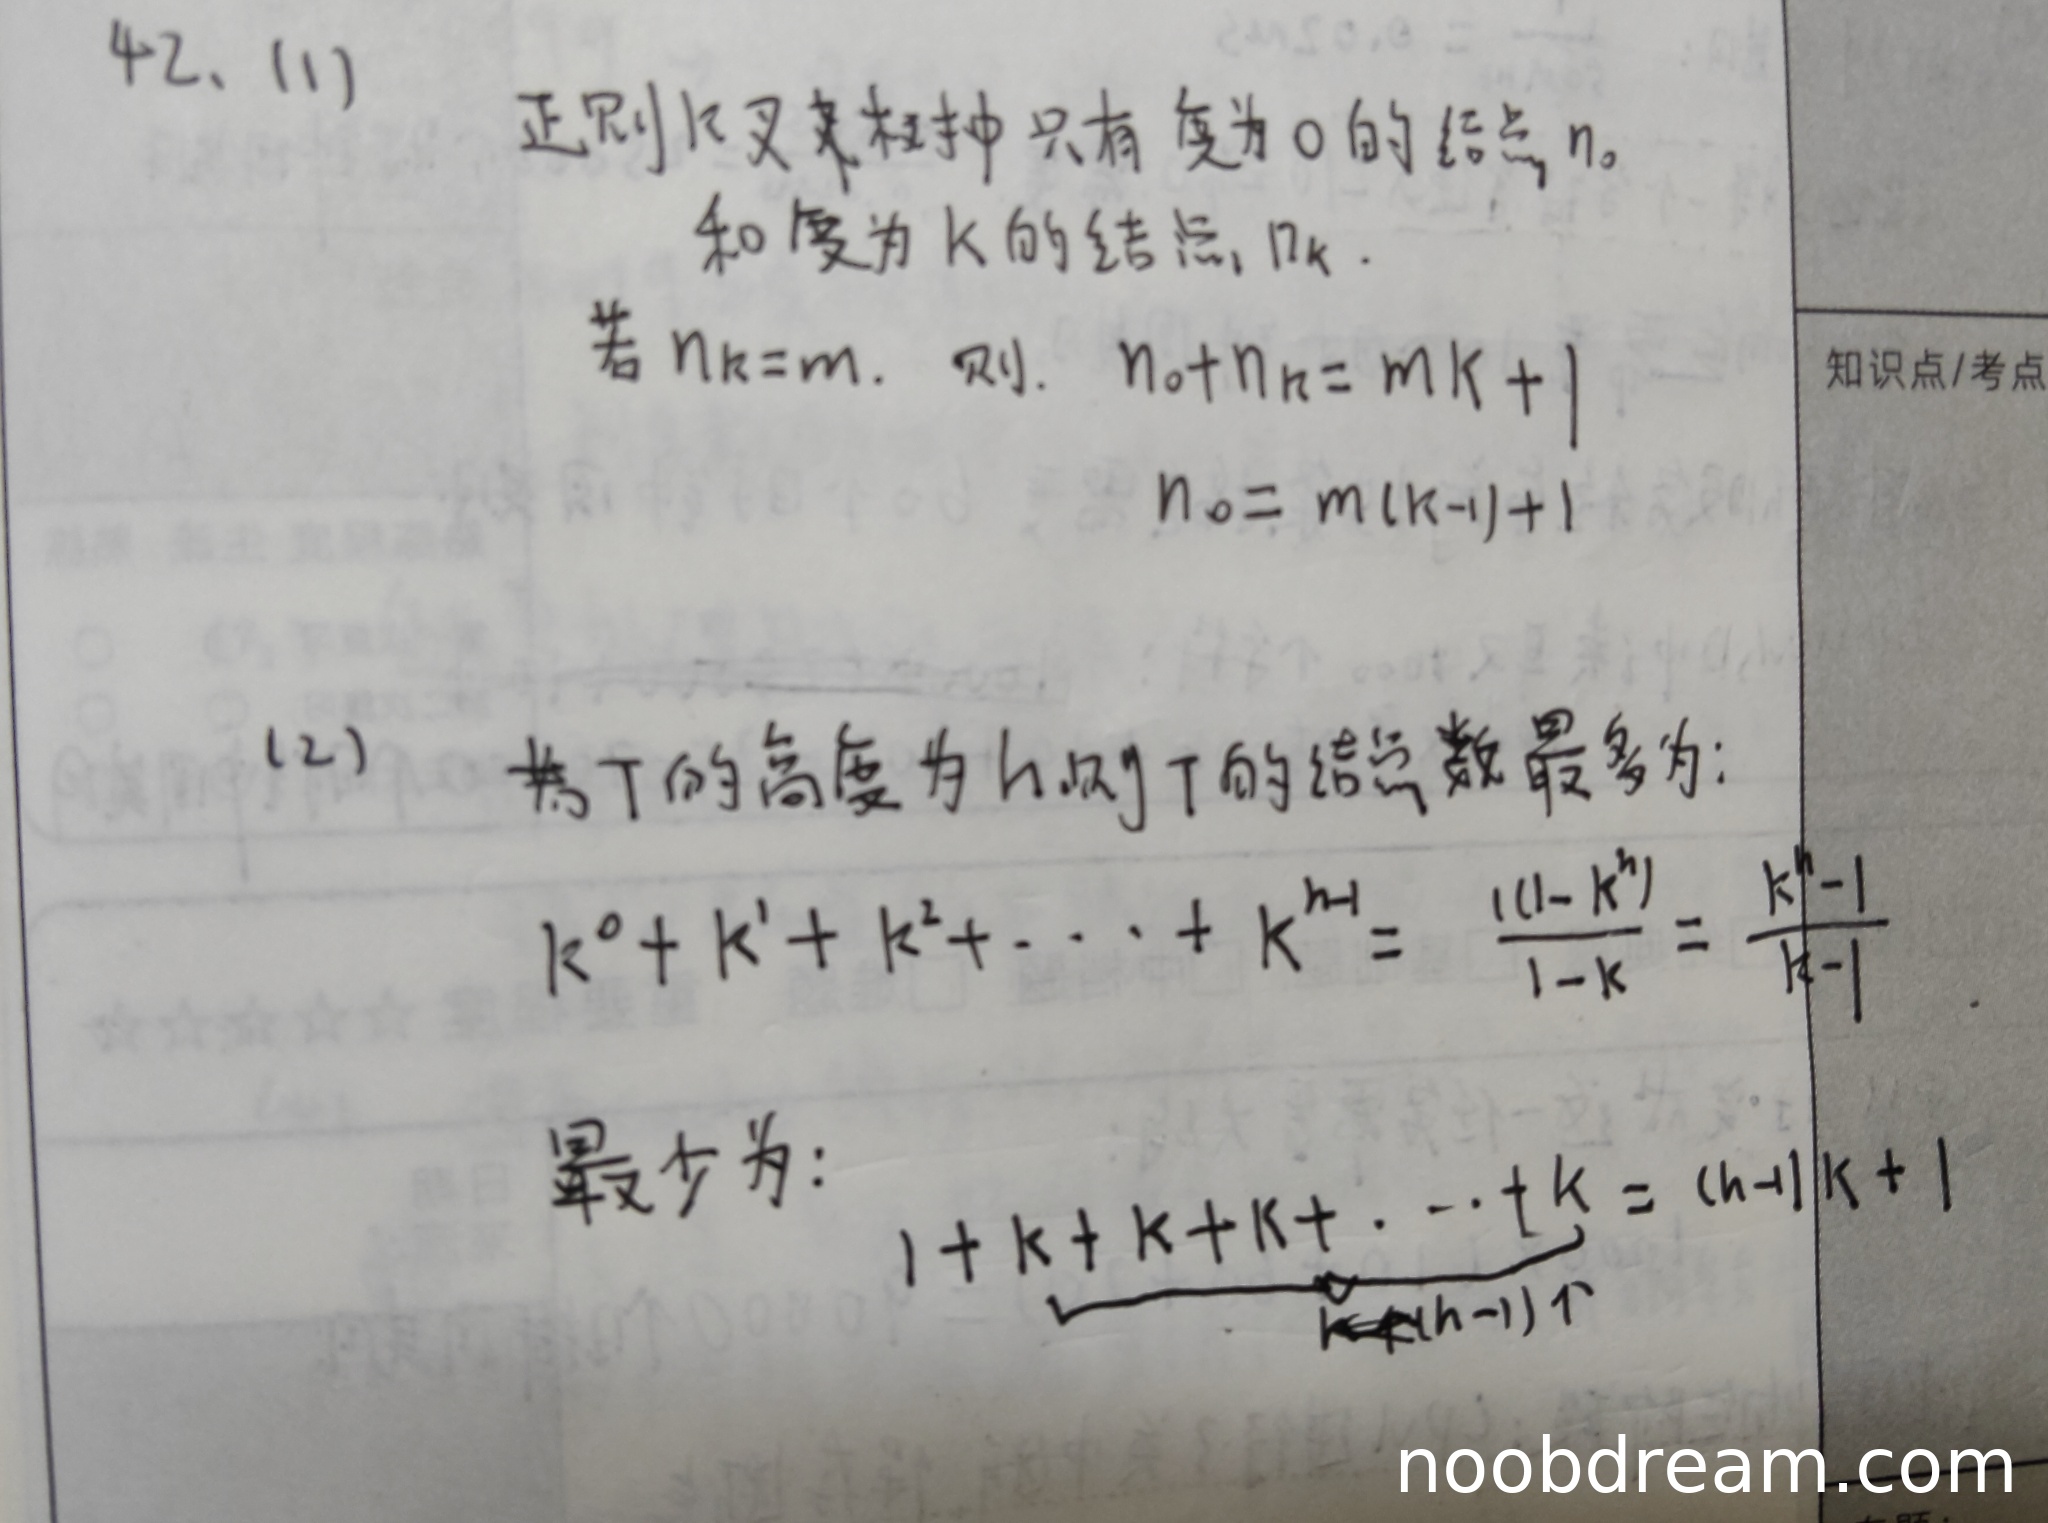 42、(1)
正则k叉树中只有度为0的结点n₀
和度为k的结点nₖ.
若 nₖ=m. 则. n₀+nₖ= mk+1
n₀= m(k-1)+1
知识点/考点
(2) 若T的高度为h则T的结点数最多为:
k⁰+k¹+k²+···+k^(h-1) = 1(1-k^h)/(1-k) = (k^h-1)/(k-1)
最少为:
1+k+k+k+·····+k = (h-1)k+1
(h-1)个
noobdream.com